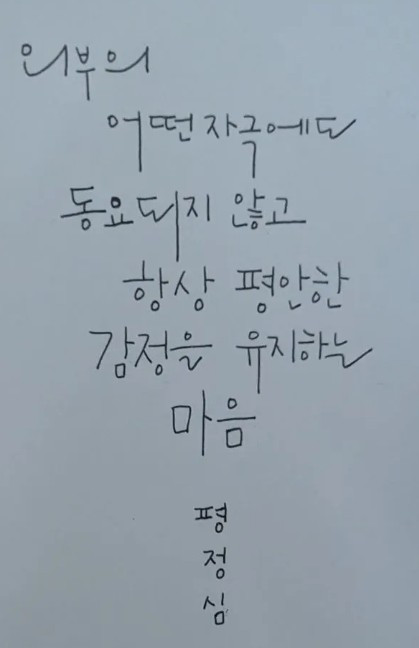 외부의
어떤 자극에도
동요되지 않고
항상 평안한
감정을 유지하는
마음
평
정
심